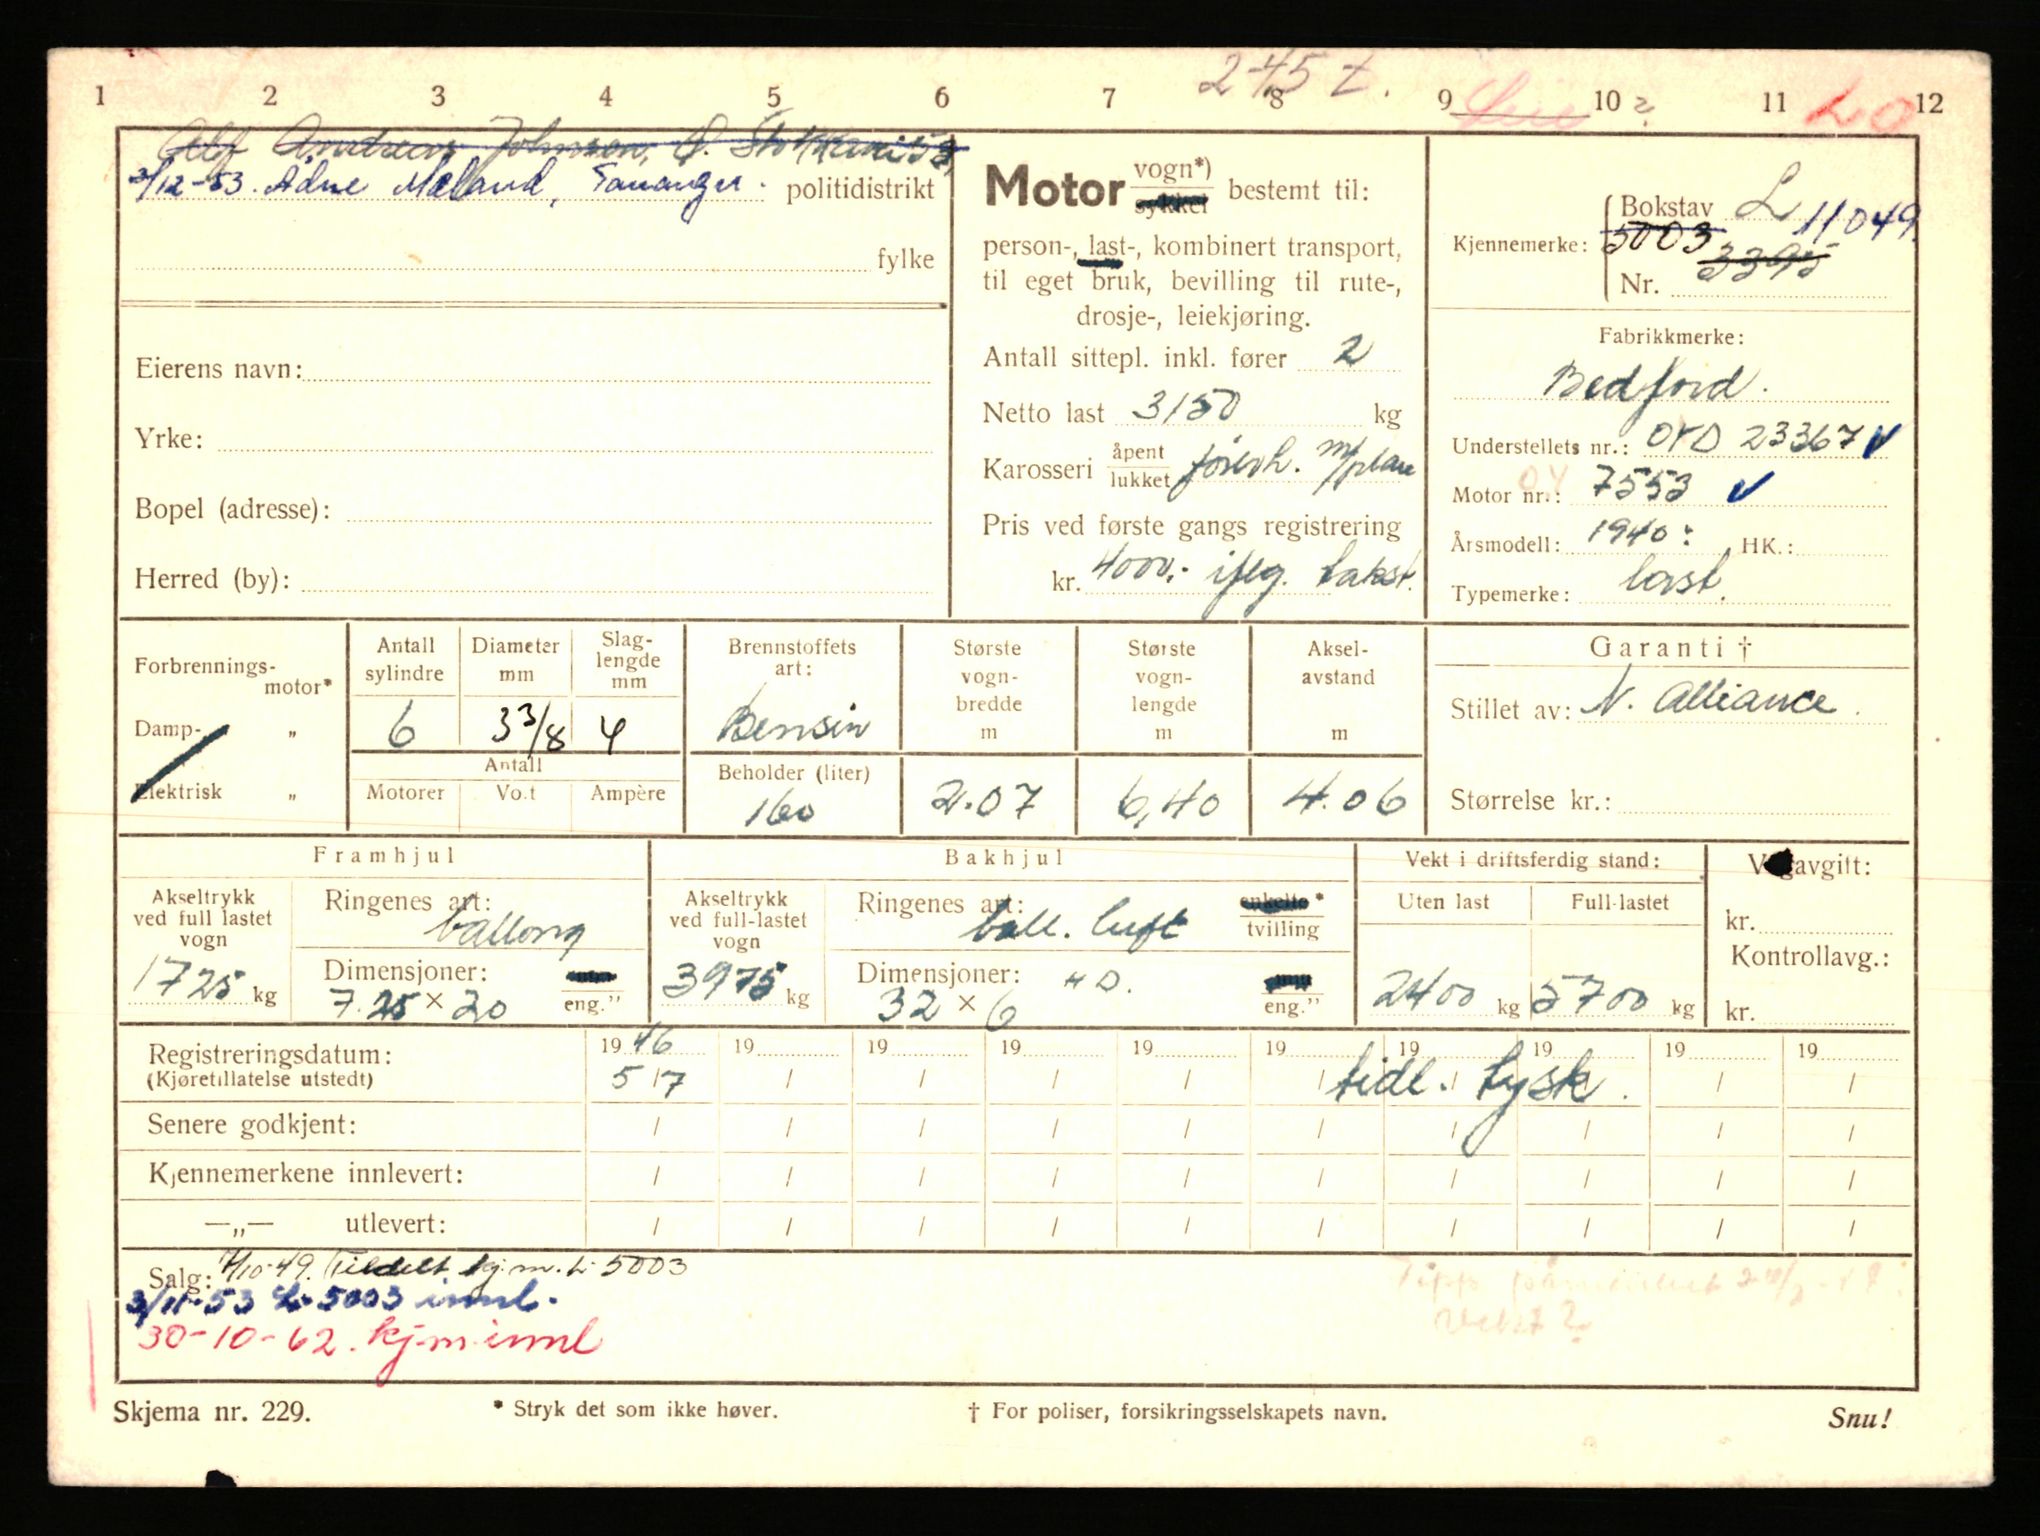 245 t.
1 2 3 4 5 6 7 8 9 10 11 12
Leie ?
LO
Alf Andreas Johnsen, Ø.
3/12-53. Ådne Meland, Tananger. politidistrikt
fylke
Eierens navn:
Yrke:
Bopel (adresse):
Herred (by):
Motor vogn*) sykkel bestemt til:
person-, last-, kombinert transport,
til eget bruk, bevilling til rute-,
drosje-, leiekjøring.
Antall sittepl. inkl. fører 2
Netto last 3150 kg
Karosseri åpent lukket førerh. m/plan
Pris ved første gangs registrering
kr. 4000,- iflg. takst.
Kjennemerke: Bokstav L 11049
5003
3395
Nr.
Fabrikkmerke:
Bedford.
Understellets nr.: OYD 23367 ✓
Motor nr.: OY 7553 ✓
Årsmodell: 1940: HK.:
Typemerke: last.
Forbrennings-motor*
Damp- „
Elektrisk „
Antall sylindre 6
Diameter mm 3 3/8
Slaglengde mm 4
Antall
Motorer Volt Ampère
Brennstoffets art:
Bensin
Beholder (liter)
160
Største vogn-bredde m
2.07
Største vogn-lengde m
6,40
Aksel-avstand m
4.06
Garanti †
Stillet av: N. Alliance.
Størrelse kr.:
Framhjul
Akseltrykk ved full lastet vogn
1725 kg
Ringenes art:
ballong
Dimensjoner:
7.25 × 20 eng."
Bakhjul
Akseltrykk ved full-lastet vogn
3975 kg
Ringenes art: enkelte*
ball. luft tvilling
Dimensjoner: HD.
32 × 6 eng."
Vekt i driftsferdig stand:
Uten last Full-lastet
2400 kg 5700 kg
Vegavgift:
kr.
Kontrollavg.:
kr.
Registreringsdatum: 1946 19 19 19 19 19 19 19 19 19
(Kjøretillatelse utstedt) 5/7 / / / / / tidl. tysk. / /
Senere godkjent: / / / / / / / / / /
Kjennemerkene innlevert: / / / / / / / / / /
—„— utlevert: / / / / / / / / / /
Salg: 7/10-49. Tildelt kj.m. L-5003
3/11-53 L-5003 innl.
30-10-62. kj.m. innl
Skjema nr. 229.
* Stryk det som ikke høver.
† For poliser, forsikringsselskapets navn.
Snu!